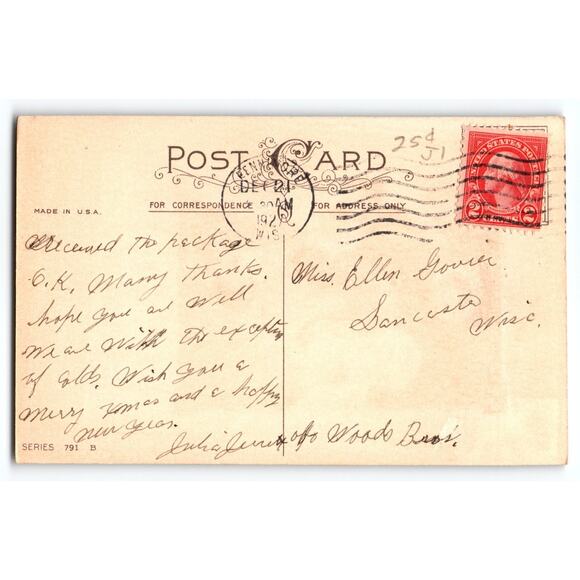 25¢
J1
POST CARD
FENNIMORE
DEC 21
30AM
192
WIS
UNITED STATES POSTAGE
2 2
MADE IN U.S.A.
FOR CORRESPONDENCE
FOR ADDRESS ONLY
Received the package
O.K. Many thanks.
hope you are well
we are with the exception
of colds. Wish you a
merry xmas and a happy
new year.
Julia
Miss. Ellen Govier
Lancaster
Wisc.
c/o Woods Bros.
SERIES 791 B